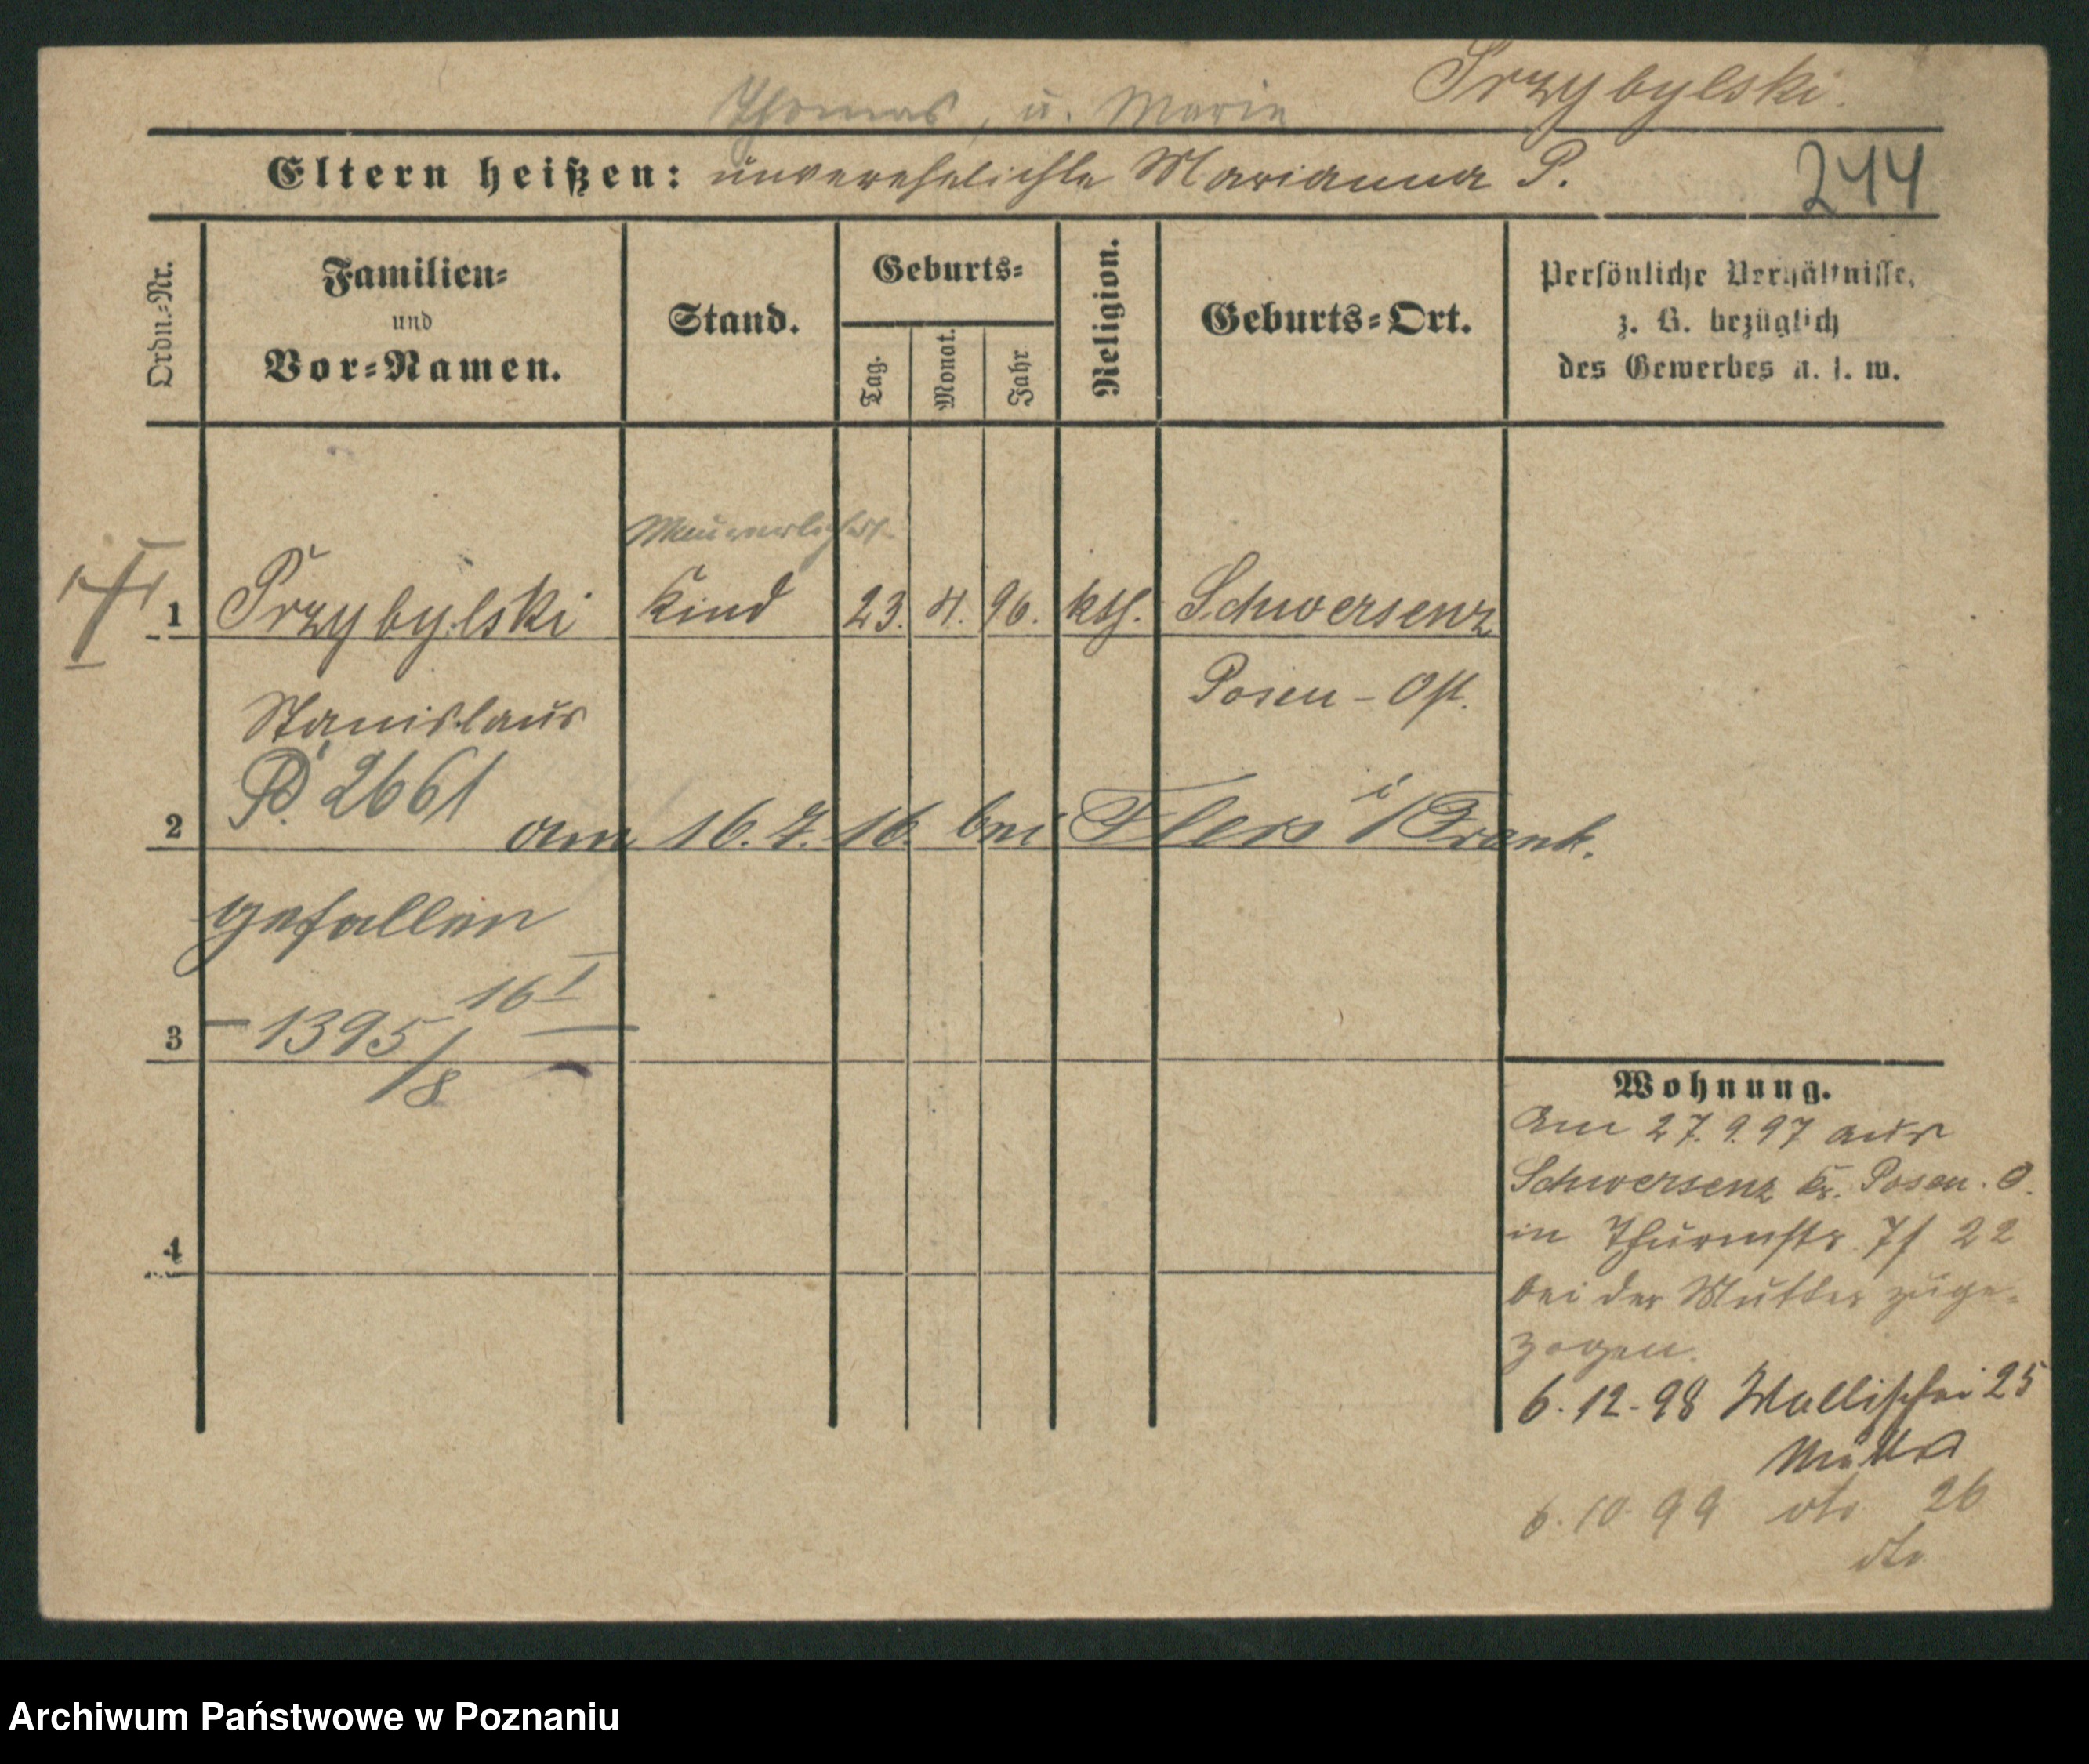 Przybylski.
Thomas, u. Marie
Eltern heißen: unverehelichte Marianna P.
244
Ordn.-Nr.
Familien-
und
Vor-Namen.
Stand.
Geburts-
Tag.
Monat.
Jahr
Religion.
Geburts-Ort.
Persönliche Verhältnisse,
z. B. bezüglich
des Gewerbes u. s. w.
Maurerlehrl.
1 Przybylski Kind 23. 4. 96. kth. Schwersenz
Stanislaus Posen - Ost.
2661
2 am 16. 7. 16. bei Flers i/Frank.
gefallen
16 I
3 - 1395/8 -
4
Wohnung.
Am 27.9.97 aus
Schwersenz Kr. Posen. O.
in Thurmstr. 7/ 22
bei der Mutter zuge-
zogen.
6.12.98 Wallischei 25
Mutter
6.10.99 dto 26
dto
Archiwum Państwowe w Poznaniu